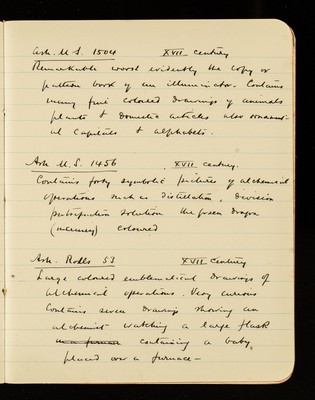 Ash. M S. 1504 XVII century
Remarkable work evidently the copy or
pattern book of an illuminator. Contains
many fine coloured drawings of animals
plants & domestic articles also ornament-
al capitals & alphabets.
Ash M.S. 1456 XVII century.
Contains forty symbolic pictures of alchemical
operations such as distillation, division
putrefaction solution the green dragon
(mercury) coloured
Ash. Rolls 53 XVII century
Large coloured emblematical drawings of
alchemical operations. Very curious
Contains seven drawings showing an
alchemist watching a large flask
on a furnace containing a baby,
placed over a furnace —